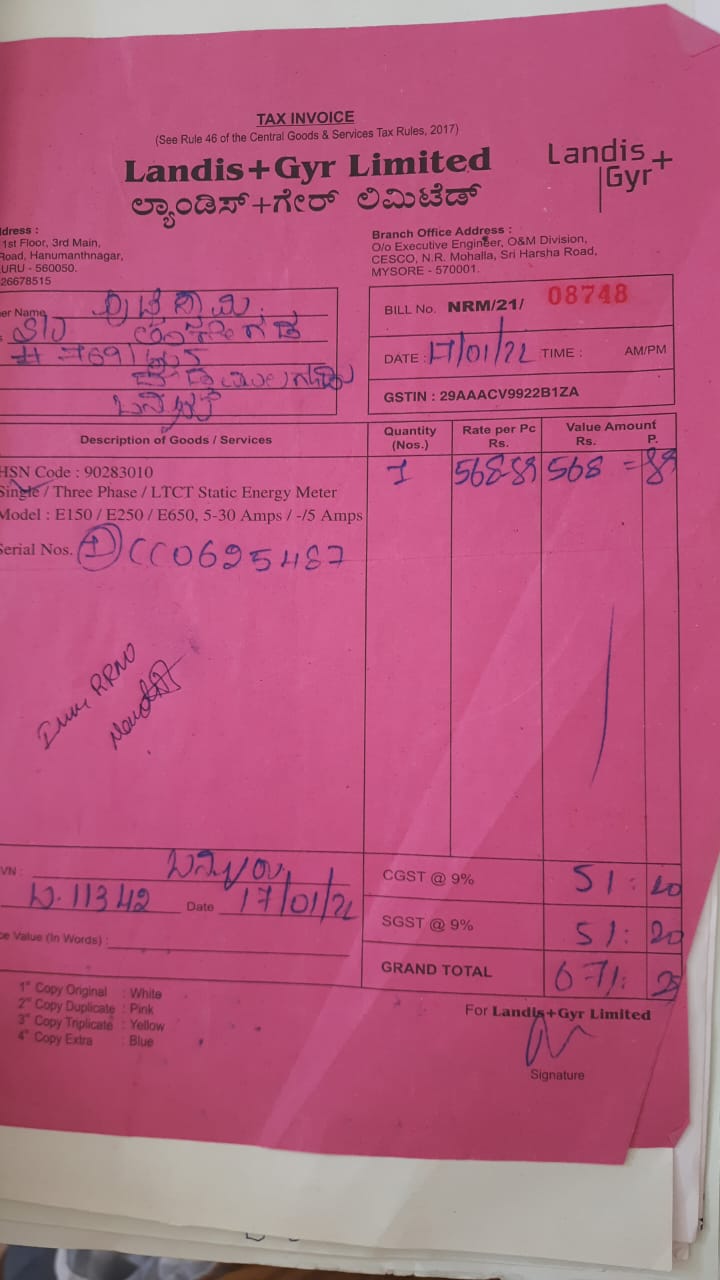 TAX INVOICE
(See Rule 46 of the Central Goods & Services Tax Rules, 2017)
Landis+Gyr Limited
ಲ್ಯಾಂಡಿಸ್+ಗೇರ್ ಲಿಮಿಟೆಡ್
Landis+
Gyr
ddress :
1st Floor, 3rd Main,
Road, Hanumanthnagar,
URU - 560050.
26678515
Branch Office Address :
O/o Executive Engineer, O&M Division,
CESCO, N.R. Mohalla, Sri Harsha Road,
MYSORE - 570001.
er Name
S/o
# 769
BILL No. NRM/21/ 08748
DATE : 17/01/22 TIME : AM/PM
GSTIN : 29AAACV9922B1ZA
Description of Goods / Services Quantity (Nos.) Rate per Pc Rs. Value Amount Rs. P.
HSN Code : 90283010 1 568-89 568 = 89
Single / Three Phase / LTCT Static Energy Meter
Model : E150 / E250 / E650, 5-30 Amps / -/5 Amps
Serial Nos. 1 CC0625487
RRNO
VN :
11342 Date 17/01/22
ce Value (In Words) :
CGST @ 9% 51 : 20
SGST @ 9% 51 : 20
GRAND TOTAL 671 :
1st Copy Original : White
2nd Copy Duplicate : Pink
3rd Copy Triplicate : Yellow
4th Copy Extra : Blue
For Landis+Gyr Limited
Signature